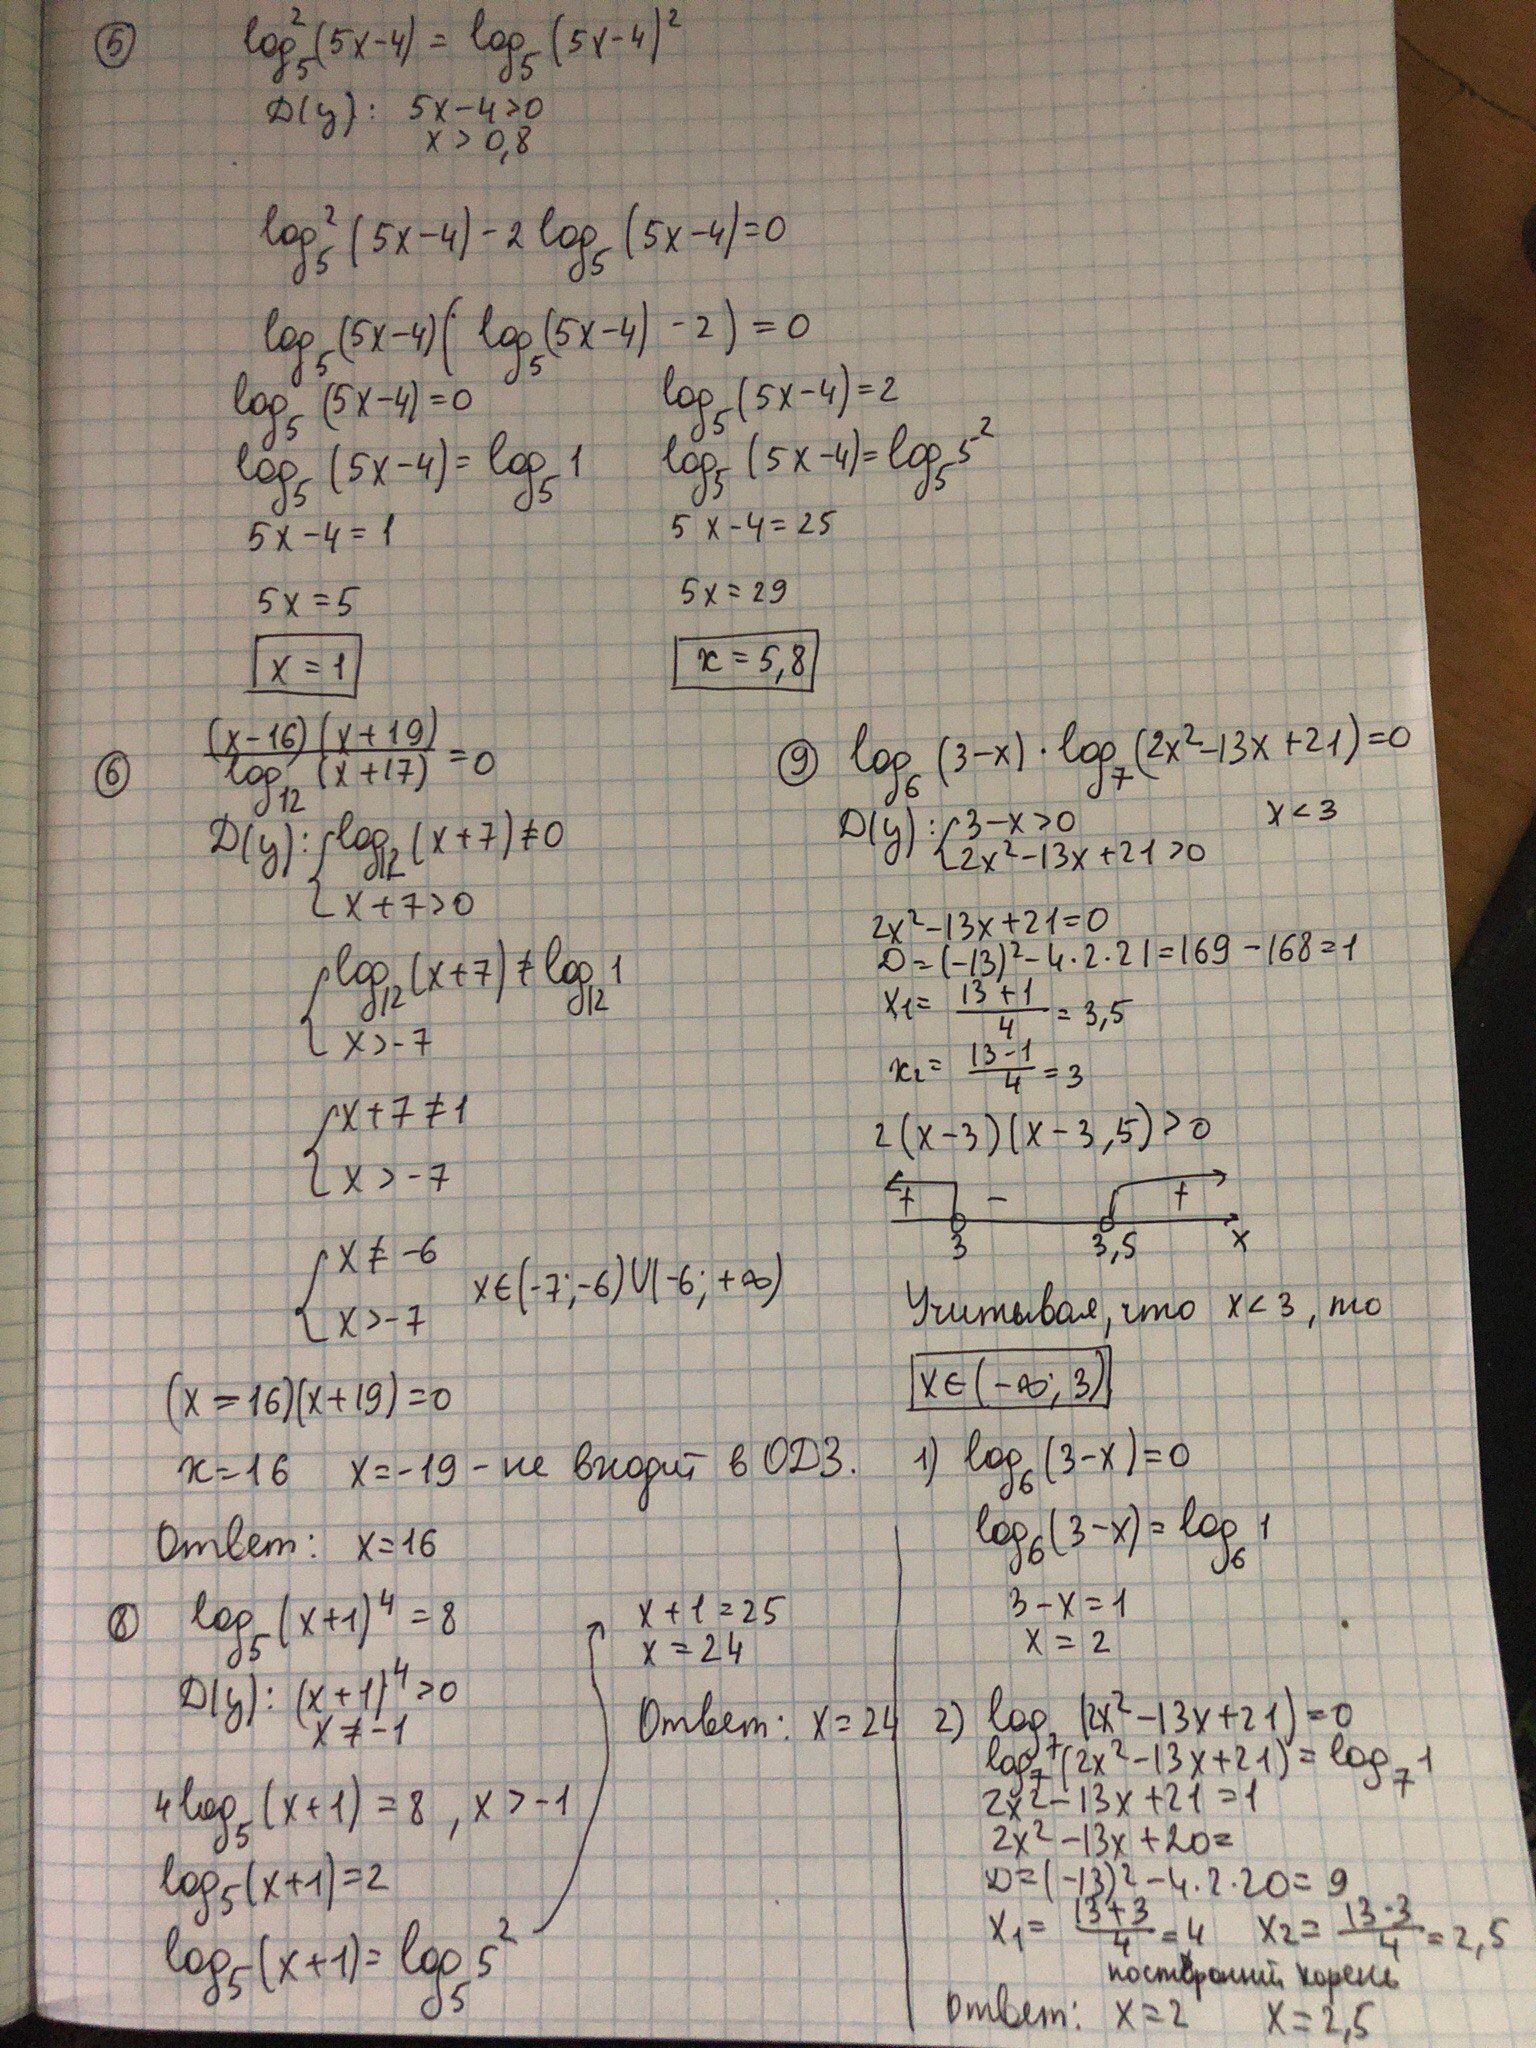 ⑤ log₅²(5x-4) = log₅(5x-4)²
D(y): 5x-4>0
x > 0,8
log₅²(5x-4) - 2log₅(5x-4)=0
log₅(5x-4)(log₅(5x-4) -2) = 0
log₅(5x-4)=0
log₅(5x-4)= log₅1
5x-4=1
5x=5
x=1
log₅(5x-4)=2
log₅(5x-4)=log₅5²
5x-4=25
5x=29
x=5,8
⑥ (x-16)(x+19)/log₁₂(x+17) =0
D(y): {log₁₂(x+7)≠0
x+7>0
{log₁₂(x+7)≠log₁₂1
x>-7
{x+7≠1
x>-7
{x≠-6
x>-7
x∈(-7;-6)∪(-6;+∞)
(x=16)(x+19)=0
x=16 x=-19 - не входит в ОДЗ.
Ответ: x=16
⑧ log₅(x+1)⁴=8
D(y): (x+1)⁴>0
x≠-1
4log₅(x+1)=8, x>-1
log₅(x+1)=2
log₅(x+1)=log₅5²
x+1=25
x=24
Ответ: x=24
⑨ log₆(3-x)·log₇(2x²-13x+21)=0
D(y): {3-x>0 x<3
2x²-13x+21>0
2x²-13x+21=0
D=(-13)²-4·2·21=169-168=1
x₁= 13+1/4 = 3,5
x₂= 13-1/4 =3
2(x-3)(x-3,5)>0
+ - +
3 3,5 x
Учитывая, что x<3, то
x∈(-∞;3)
1) log₆(3-x)=0
log₆(3-x)=log₆1
3-x=1
x=2
2) log₇(2x²-13x+21)=0
log₇(2x²-13x+21)=log₇1
2x²-13x+21=1
2x²-13x+20=
D=(-13)²-4·2·20=9
x₁= 13+3/4 =4 x₂= 13-3/4 =2,5
посторонний корень
Ответ: x=2 x=2,5